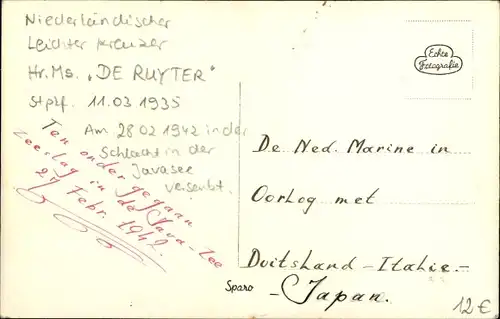 Niederländischer
Leichter Kreuzer
Hr. Ms. „DE RUYTER"
Stplf. 11.03 1935
Am 28 02 1942 in der
Schlacht in der
Javasee
versenkt.
Ten onder gegaan
Zeeslag in de Java-Zee
27 Febr. 1942.
Echte
Fotografie
De Ned. Marine in
Oorlog met
Duitsland-Italie-
-Japan.
Sparo
12€